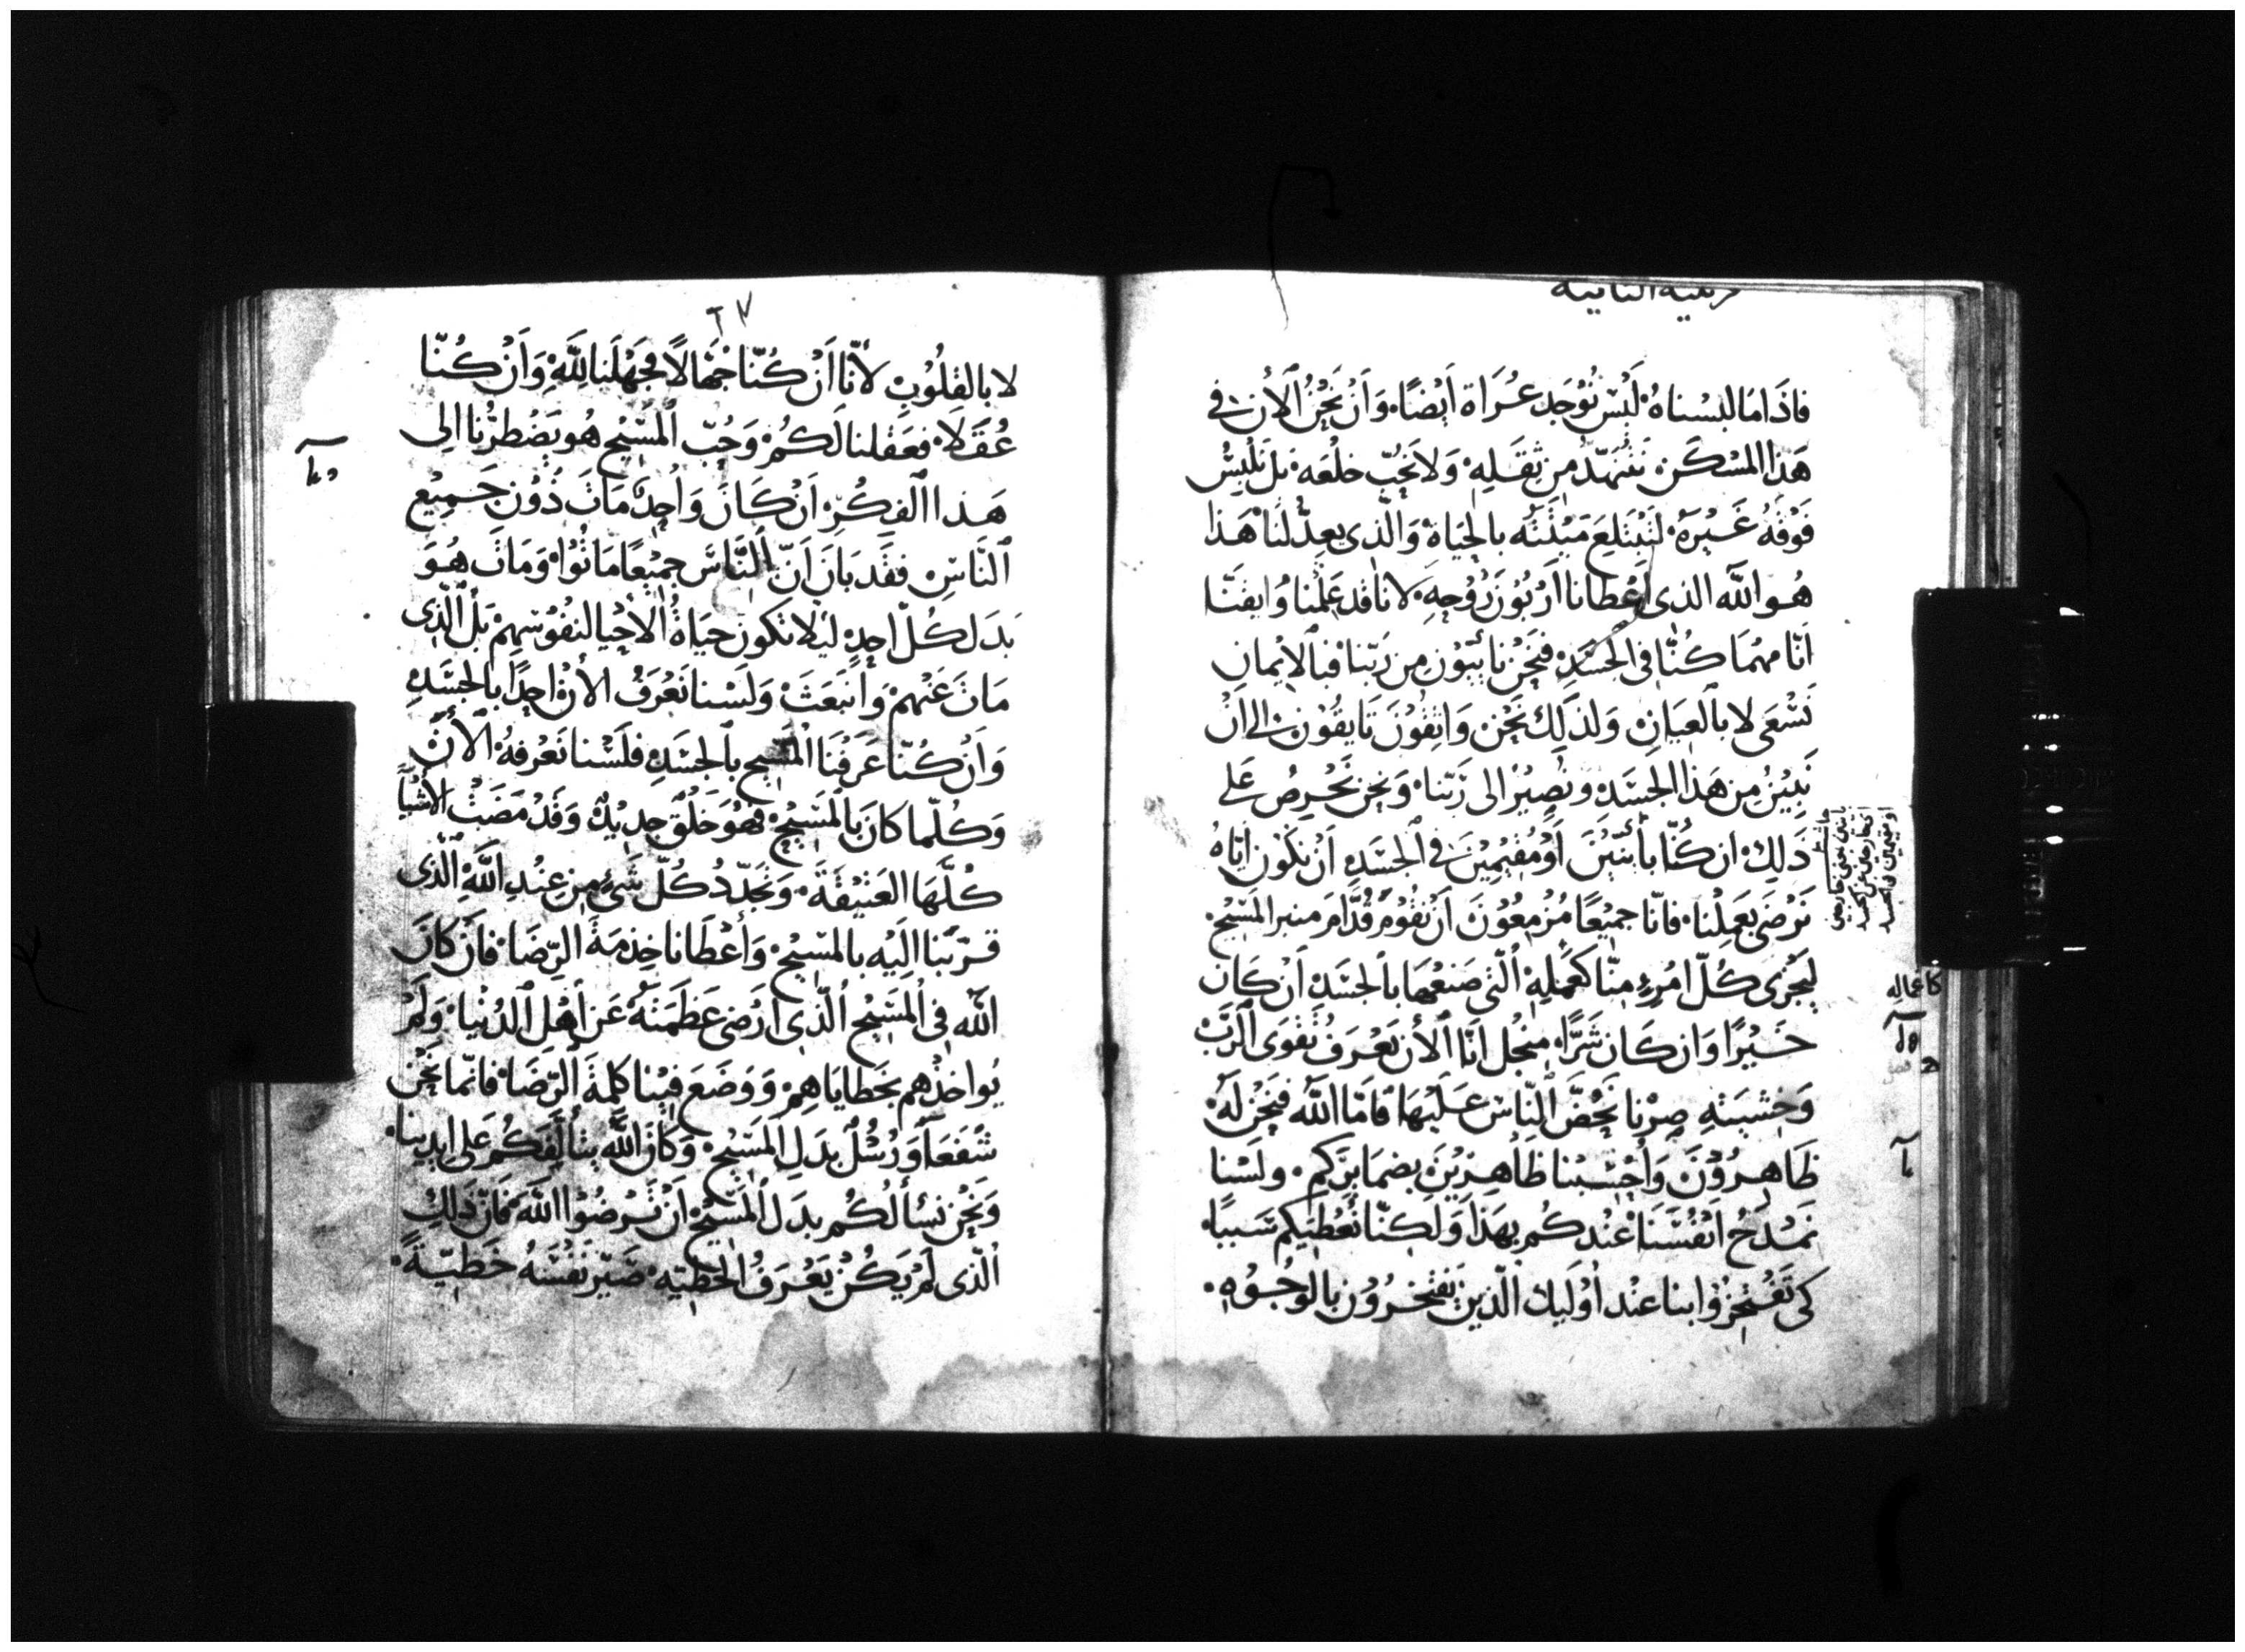 قرنتيه الثانيه
فاذَا مَا لبسْناهُ لَيْسَ نُوْجَد عُرَاة اَيْضًا. وَاَنْ نَحْنُ اَلأن فى
هَذا المسْكَن نَتَنهّدُ من ثِقَلِهِ وَلا نحُبّ خلْعَه بَل نَلبَسُ
فَوْقهُ غَيْرَهُ لتَبْتَلِعَ مَيْتَتَه بالحَيَاة وَالذى يعِدّ لنَا هَذا
هُو اللّه الذى اَعْطانا ارْبُوْن رُوْحِهِ لانا قد عَلِمْنا وَايقَنّا
اَنّا مهْمَا كُنّا فى الجَسَدِ فنَحْنُ نائبُوْن من رَبّنا فبالايْمانِ
نَسْعَى لا بالعِيَانِ وَلذَلِكَ نَحْن وَاثِقُوْنَ تَايقُوْن الى اَنْ
نَبِيْنُ مِن هَذا الجَسَدِ ونَصِيْرُ الى رَبّنا. وَنحن نَحْرِصُ عَلى
ذَلِكَ ان كُنّا بأئنِيْنَ اَوْ مُقيْمِيْنَ فى الجَسَدِ اَنْ نكُون ايّاهُ
نَرْضى بعَمَلِنا. فانّا جميْعًا مُزْمِعُوْنَ اَنْ نقُوْمَ قُدّامَ منبر المَسِيْح.
لِيَجْزى كُلّ امْرِءٍ مِنّا كعَمَلِهِ الّتى صَنعَهَا بالجَسَدِ اَنْ كَان
خَيْرًا وَان كَان شَرًّا. منجُل انّا اَلأن نَعْرَف تَقْوَى الرَبّ
وَخشيَتهِ صِرْنا نَحُضّ النّاسَ عَلَيْهَا فامّا اللّه فنَحْن لَهُ
ظَاهرُوْنَ وَاَحْسَبُنا ظَاهِرِيْنَ بضمَايِركم. ولَسْنا
نَمْدَحُ اَنْفُسَنَا عنْدكُم بهَذا وَلكِنّا نُعْطيْكم سَببًا.
كى تَفْتَخِرُوْا بنا عنْد اوْلَيِكَ الّذينَ يَفْتَخرُوْن بالوجُوْهِ.
كاعماله
لا بالقلُوْبِ لأنّا اَنْ كُنّا جُهّالاً فجَهْلَنا للّهِ وَاَنْ كُنّا
عُقَلَا فعَقْلنا لَكُمْ وَحُبّ المَسِيْح هُو يَضْطرُّنا الى
هَذا الفِكْرِ اَنْ كَانَ وَاحِدٌ مَاتَ دُوْنِ جَمِيْع
النّاسِ فقَد بَانَ اَنّ النَّاسَ جميْعًا مَاتُوْا. وَمَات هُوَ
بَدَل كُلّ احدٍ ليْلا تكون حيَاةُ الاحْيا لنفُوْسِهِمْ بَل الّذى
مَاتَ عَنهمْ وَانبعَثَ وَلَسْنا نَعْرَفُ الأن احِدًا بالجَسَدِ
وَاَنْ كُنّا عَرَفْنَا المَسِيْح بالجَسَدِ فلَسْنا نَعْرفهُ الأن
وَكُلّما كانَ بالمَسِيْحِ فهُوَ خَلْق جدِيْدٌ وَقَدْ مَضَتْ الأشْيا
كُلَّهَا العَتيْقَة. وَتجَدّدُ كُلّ شَىءٍ من عِنْدِ اللّهِ الّذى
قرّبَنا الَيْه بالمَسِيْح. وَأعْطَانا خِدْمَةَ الرّضَا. فانّ كانَ
اللّه فى المَسِيْح الّذى ارْضى عَظَمَتهُ عَن اَهْل الدُنْيا. وَلَمْ
يُواخذْهم بخَطايَاهِمْ وَوضَعَ فيْنا كلمَة الرّضَا. فانّما نَحْن
شَفَعَا وَرُسُلٌ بدَل المَسِيْح. وَكانَ اللّهَ يتألّفكُم عَلى ايدِينا.
وَنحْن نسْألُكُم بدَل المَسِيْح اَنْ تَرضُوْا اللّه فانّ ذَلِكَ
الّذى لَمْ يَكُنْ يَعْرَفُ الخَطِيّه صَيّرَ نَفْسَهُ خَطيّةً.